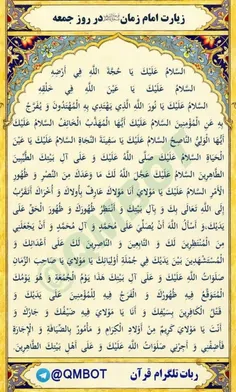 زیارت امام زمان در روز جمعه
السَّلامُ عَلَیْكَ یَا حُجَّةَ اللَّهِ فِی أَرْضِهِ
السَّلامُ عَلَیْكَ یَا عَیْنَ اللَّهِ فِی خَلْقِهِ
السَّلامُ عَلَیْكَ یَا نُورَ اللَّهِ الَّذِی یَهْتَدِی بِهِ الْمُهْتَدُونَ وَ یُفَرَّجُ
بِهِ عَنِ الْمُؤْمِنِینَ السَّلامُ عَلَیْكَ أَیُّهَا الْمُهَذَّبُ الْخَائِفُ السَّلامُ عَلَیْكَ
أَیُّهَا الْوَلِیُّ النَّاصِحُ السَّلامُ عَلَیْكَ یَا سَفِینَةَ النَّجَاةِ السَّلامُ عَلَیْكَ یَا عَیْنَ
الْحَیَاةِ السَّلامُ عَلَیْكَ صَلَّى اللَّهُ عَلَیْكَ وَ عَلَى آلِ بَیْتِكَ الطَّیِّبِینَ
الطَّاهِرِینَ السَّلامُ عَلَیْكَ عَجَّلَ اللَّهُ لَكَ مَا وَعَدَكَ مِنَ النَّصْرِ وَ ظُهُورِ
الْأَمْرِ السَّلامُ عَلَیْكَ یَا مَوْلایَ أَنَا مَوْلاكَ عَارِفٌ بِأُولاكَ وَ أُخْرَاكَ أَتَقَرَّبُ
إِلَى اللَّهِ تَعَالَى بِكَ وَ بِآلِ بَیْتِكَ وَ أَنْتَظِرُ ظُهُورَكَ وَ ظُهُورَ الْحَقِّ عَلَى
یَدَیْكَ وَ أَسْأَلُ اللَّهَ أَنْ یُصَلِّیَ عَلَى مُحَمَّدٍ وَ آلِ مُحَمَّدٍ وَ أَنْ یَجْعَلَنِی
مِنَ الْمُنْتَظِرِینَ لَكَ وَ التَّابِعِینَ وَ النَّاصِرِینَ لَكَ عَلَى أَعْدَائِكَ وَ
الْمُسْتَشْهَدِینَ بَیْنَ یَدَیْكَ فِی جُمْلَةِ أَوْلِیَائِكَ یَا مَوْلایَ یَا صَاحِبَ الزَّمَانِ
صَلَوَاتُ اللَّهِ عَلَیْكَ وَ عَلَى آلِ بَیْتِكَ هَذَا یَوْمُ الْجُمُعَةِ وَ هُوَ یَوْمُكَ
الْمُتَوَقَّعُ فِیهِ ظُهُورُكَ وَ الْفَرَجُ فِیهِ لِلْمُؤْمِنِینَ عَلَى یَدَیْكَ وَ
قَتْلُ الْكَافِرِینَ بِسَیْفِكَ وَ أَنَا یَا مَوْلایَ فِیهِ ضَیْفُكَ وَ جَارُكَ وَ
أَنْتَ یَا مَوْلایَ كَرِیمٌ مِنْ أَوْلادِ الْكِرَامِ وَ مَأْمُورٌ بِالضِّیَافَةِ وَ الْإِجَارَةِ
فَأَضِفْنِی وَ أَجِرْنِی صَلَوَاتُ اللَّهِ عَلَیْكَ وَ عَلَى أَهْلِ بَیْتِكَ الطَّاهِرِینَ.
ربات تلگرام قرآن @QMBOT